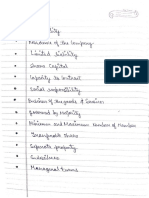 lity
Residence of the Company
Limited Liability
Share Capital
Capacity to Contract
Social responsibility
Business of the goods & Services
Governed by majority
Minimum and Maximum Number of Member
Transferable Share
Separate property
Guidelines
Managerial